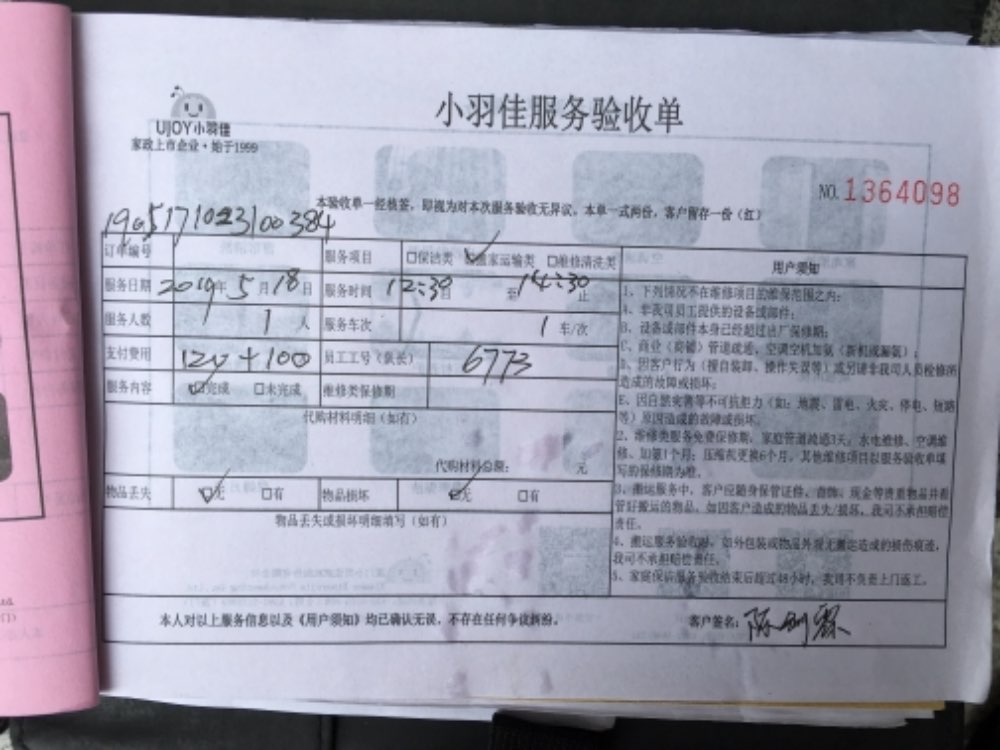 小羽佳服务验收单
UJOY小羽佳
家政上市企业·始于1999
NO.1364098
本验收单一经核签，即视为对本次服务验收无异议。本单一式两份，客户留存一份（红）
1905171023100384
订单编号 服务项目 口保洁类 口搬家运输类 口维修清洗类
服务日期 2019年5月18日 服务时间 12:30 至14:30止
服务人数 1人 服务车次 1车/次
支付费用 120+100 员工工号（队长） 6773
服务内容 口完成 口未完成 维修类保修期
代购材料明细（如有）
代购材料总额： 元
物品丢失 口无 口有 物品损坏 口无 口有
物品丢失或损坏明细填写（如有）
用户须知
1、下列情况不在维修项目的维保范围之内：
A、非我司员工提供的设备或部件；
B、设备或部件本身已经超过出厂保修期；
C、商业（商铺）管道疏通，空调空机加氨（新机或漏氨）；
D、因客户行为（擅自装卸、操作失误等）或另请非我司人员检修所
造成的故障或损坏；
E、因自然灾害等不可抗拒力（如：地震、雷电、火灾、停电、短路
等）原因造成的故障或损坏。
2、维修类服务免费保修期，家庭管道疏通3天，水电维修、空调维
修、加氨1个月；压缩机更换6个月，其他维修项目以服务验收单填
写的保修期为准。
3、搬运服务中，客户应随身保管证件、首饰、现金等贵重物品并看
管好搬运的物品，如因客户造成的物品丢失/损坏，我司不承担赔偿
责任。
4、搬运服务验收时，如外包装或物品外观无搬运造成的损伤痕迹，
我司不承担赔偿责任。
5、家庭保洁服务验收结束后超过48小时，我司不负责上门返工。
本人对以上服务信息以及《用户须知》均已确认无误，不存在任何争议纠纷。
客户签名：